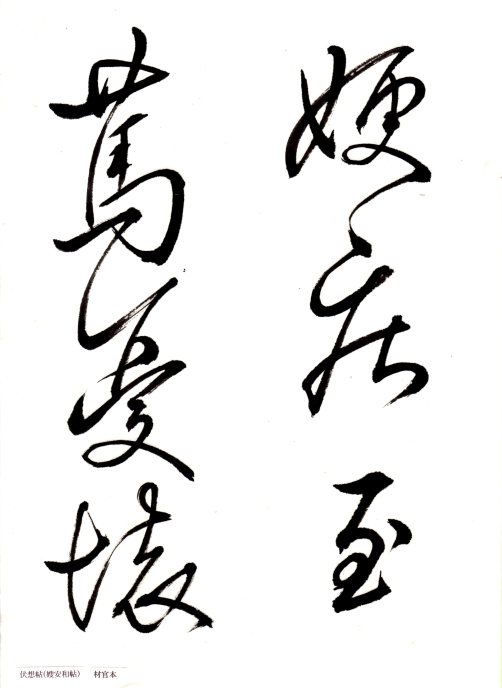 嫂疾至
篤憂懷
伏想帖(嫂安和帖) 材官本